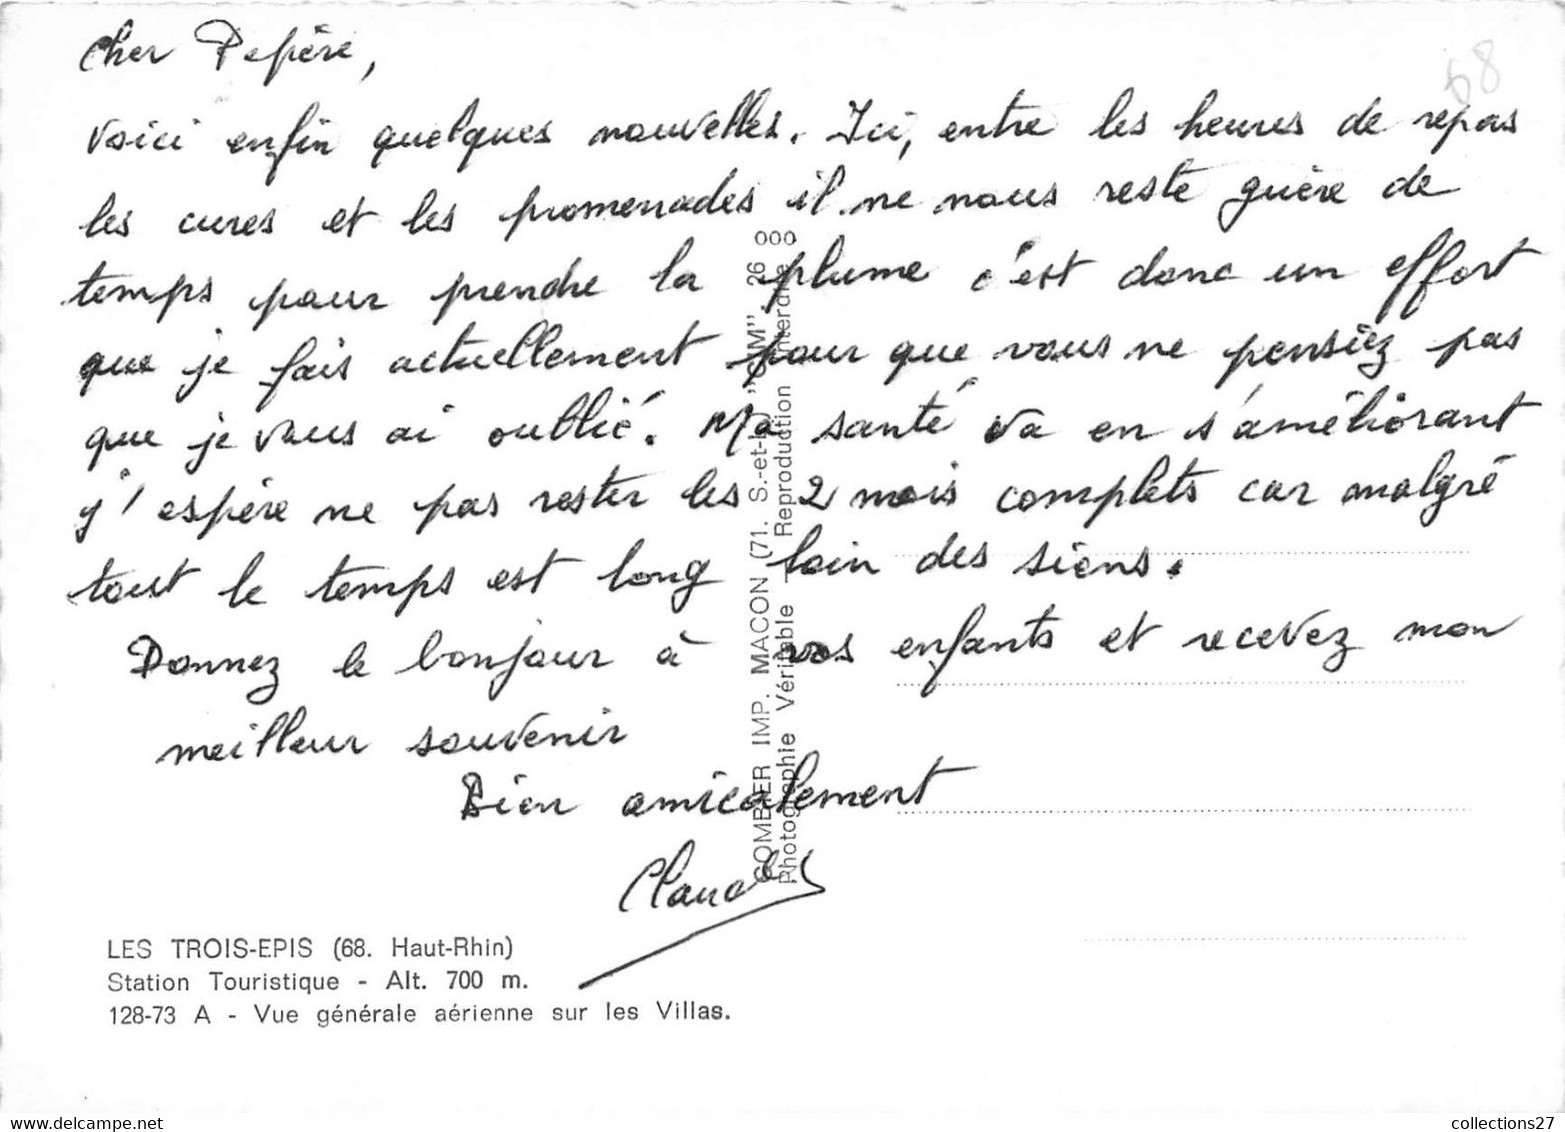 68
Cher Pepère,
Voici enfin quelques nouvelles. Ici, entre les heures de repas
les cures et les promenades il ne nous reste guère de
temps pour prendre la plume c'est donc un effort
que je fais actuellement pour que vous ne pensiez pas
que je vous ai oublié. Ma santé va en s'améliorant
j'espère ne pas rester les 2 mois complets car malgré
tout le temps est long loin des siens.
Donnez le bonjour à vos enfants et recevez mon
meilleur souvenir
Bien amicalement
Claude
COMBIER IMP. MACON (71. S.-et-L.) "CIM". 26 000
Photographie Véritable - Reproduction interdite
LES TROIS-EPIS (68. Haut-Rhin)
Station Touristique - Alt. 700 m.
128-73 A - Vue générale aérienne sur les Villas.
collections27